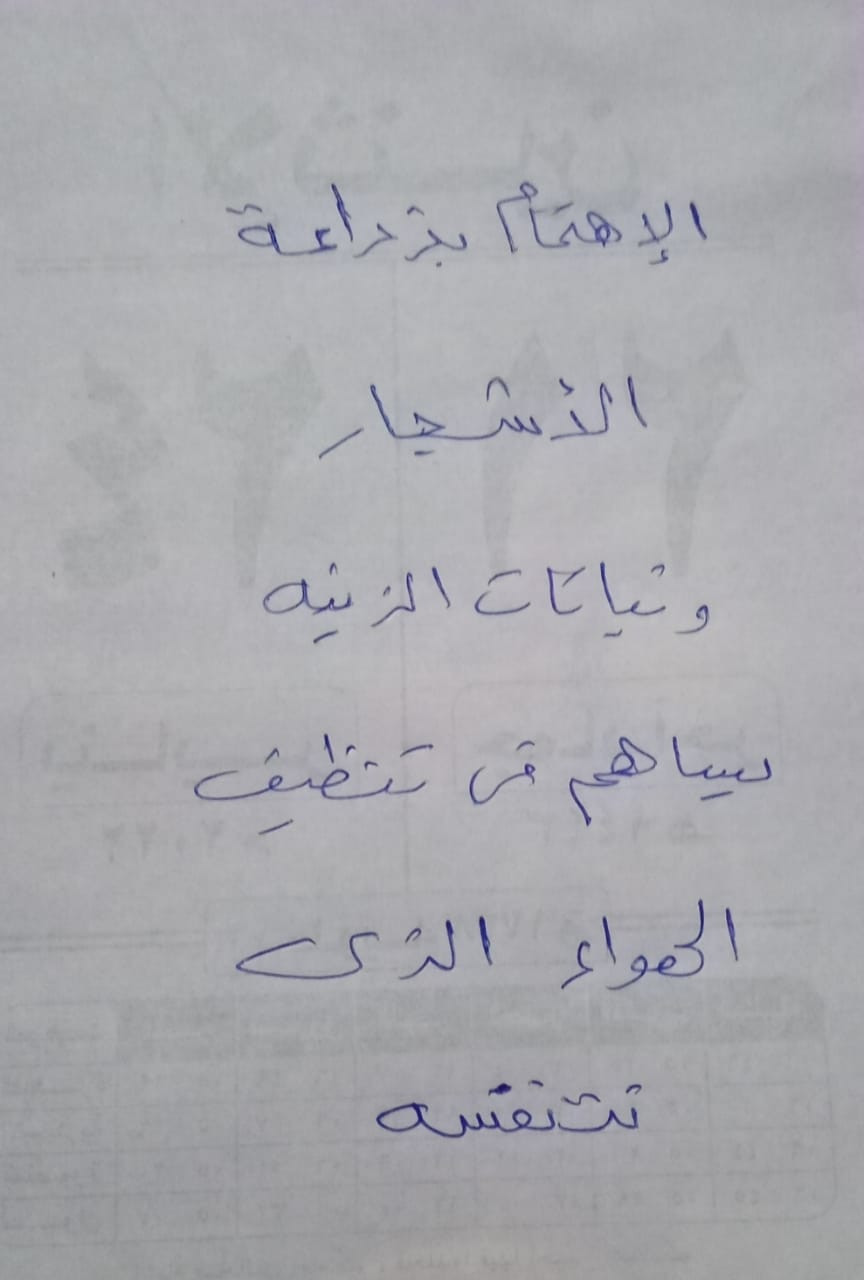 الإهتمام بزراعة
الأشجار
ونباتات الزينه
يساهم فى تنظيف
الهواء الذى
نتنفسه